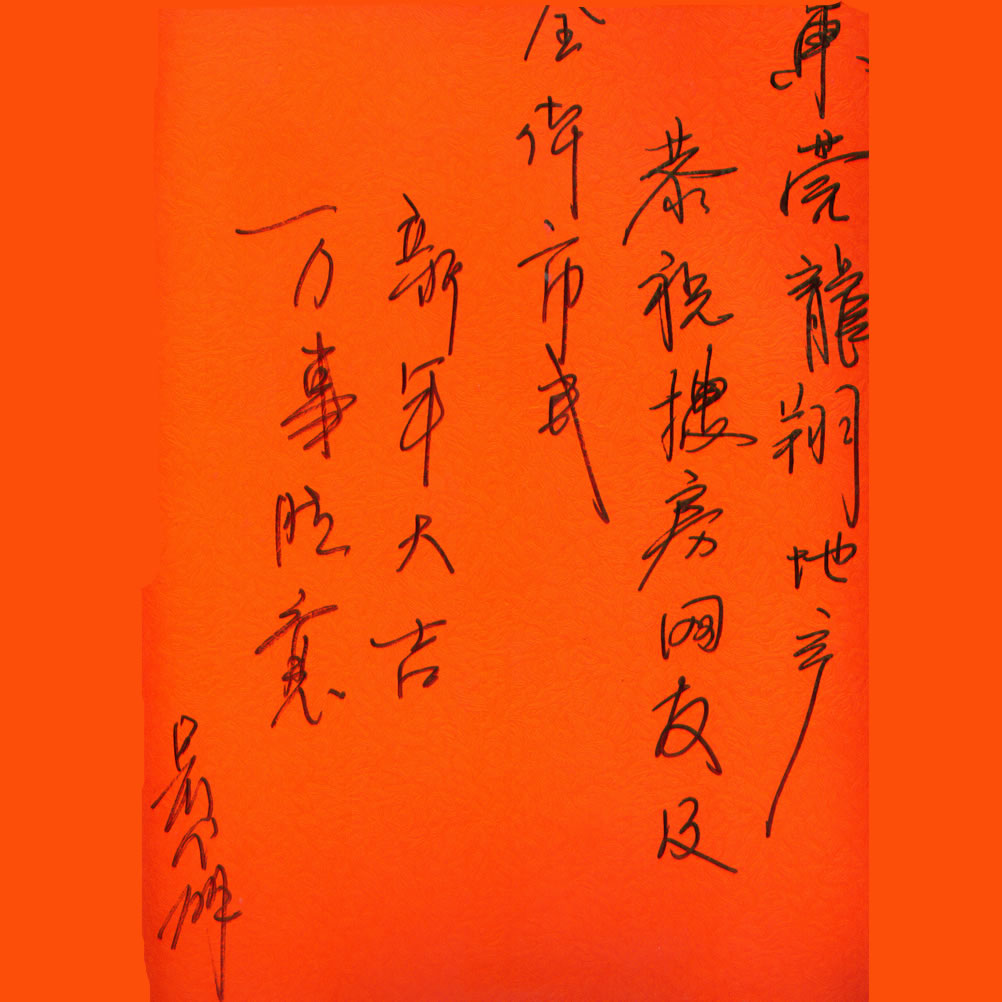 東莞龍翔地产
恭祝搜房网友及
全体市民
新年大吉
万事胜意